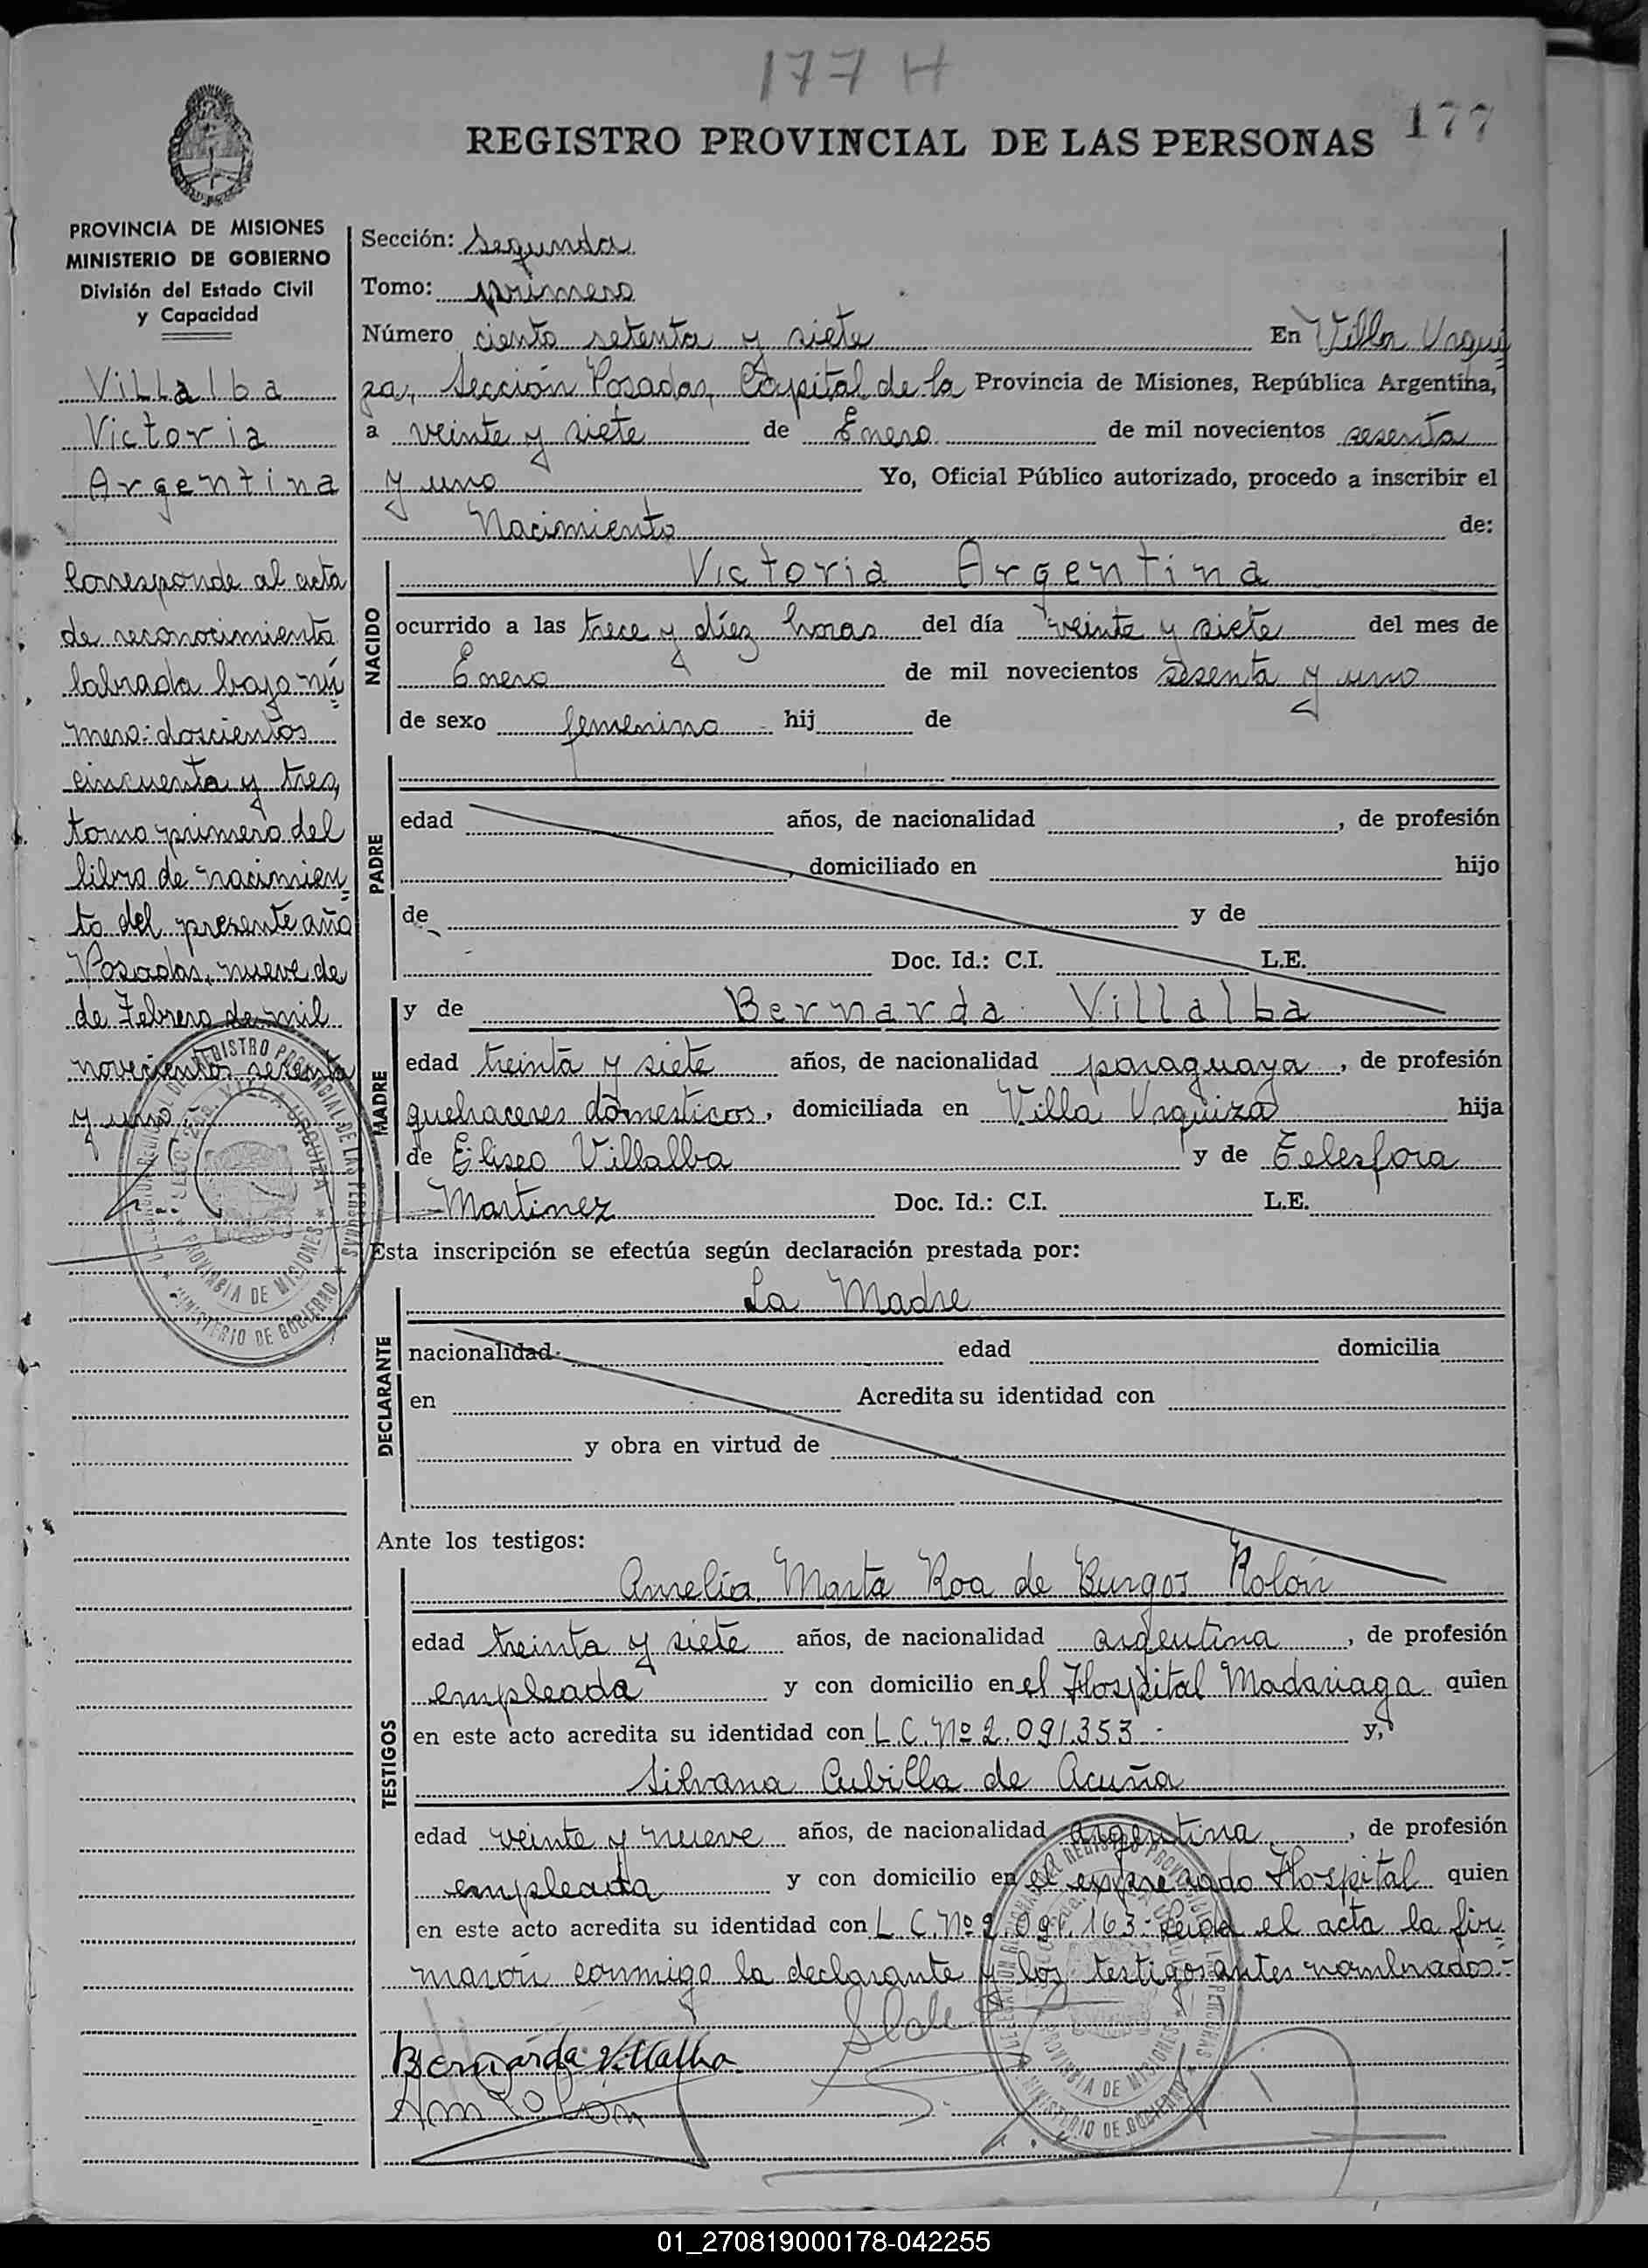 177 H
177
REGISTRO PROVINCIAL DE LAS PERSONAS
PROVINCIA DE MISIONES
MINISTERIO DE GOBIERNO
División del Estado Civil
y Capacidad
Villalba
Victoria
Argentina
Corresponde al acta
de reconocimiento
labrada bajo nú
mero: doscientos
cincuenta y tres,
tomo primero del
libro de nacimien
to del presente año
Posadas, nueve de
de Febrero de mil
novecientos sesenta
y uno
Sección: Segunda
Tomo: primero
Número ciento setenta y siete En Villa Urqui
za, Sección Posadas, Capital de la Provincia de Misiones, República Argentina,
a veinte y siete de Enero de mil novecientos sesenta
y uno Yo, Oficial Público autorizado, procedo a inscribir el
Nacimiento de:
NACIDO
Victoria Argentina
ocurrido a las trece y díez horas del día veinte y siete del mes de
Enero de mil novecientos sesenta y uno
de sexo femenino hij de
PADRE
edad años, de nacionalidad , de profesión
, domiciliado en hijo
de y de
Doc. Id.: C.I. L.E.
MADRE
y de Bernarda Villalba
edad treinta y siete años, de nacionalidad paraguaya, de profesión
quehaceres domesticos, domiciliada en Villa Urquiza hija
de Eliseo Villalba y de Telesfora
Martinez Doc. Id.: C.I. L.E.
Esta inscripción se efectúa según declaración prestada por:
DECLARANTE
La Madre
nacionalidad edad domicilia
en Acredita su identidad con
y obra en virtud de
Ante los testigos:
TESTIGOS
Amelia Marta Roa de Burgos Rolón
edad treinta y siete años, de nacionalidad argentina, de profesión
empleada y con domicilio en el Hospital Madariaga quien
en este acto acredita su identidad con L.C. Nº 2.091.353 - y,
Silvana Cubilla de Acuña
edad veinte y nueve años, de nacionalidad argentina, de profesión
empleada y con domicilio en el expresado Hospital quien
en este acto acredita su identidad con L.C. Nº 2.091.163 - Leida el acta la fir
marón conmigo la declarante y los testigos antes nombrados.-
Bernarda Villalba
REGISTRO PROVINCIAL DE LAS PERSONAS
VILLA URQUIZA
PROVINCIA DE MISIONES
MINISTERIO DE GOBIERNO
REGISTRO PROVINCIAL DE LAS PERSONAS
PROVINCIA DE MISIONES
MINISTERIO DE GOBIERNO
01_270819000178-042255